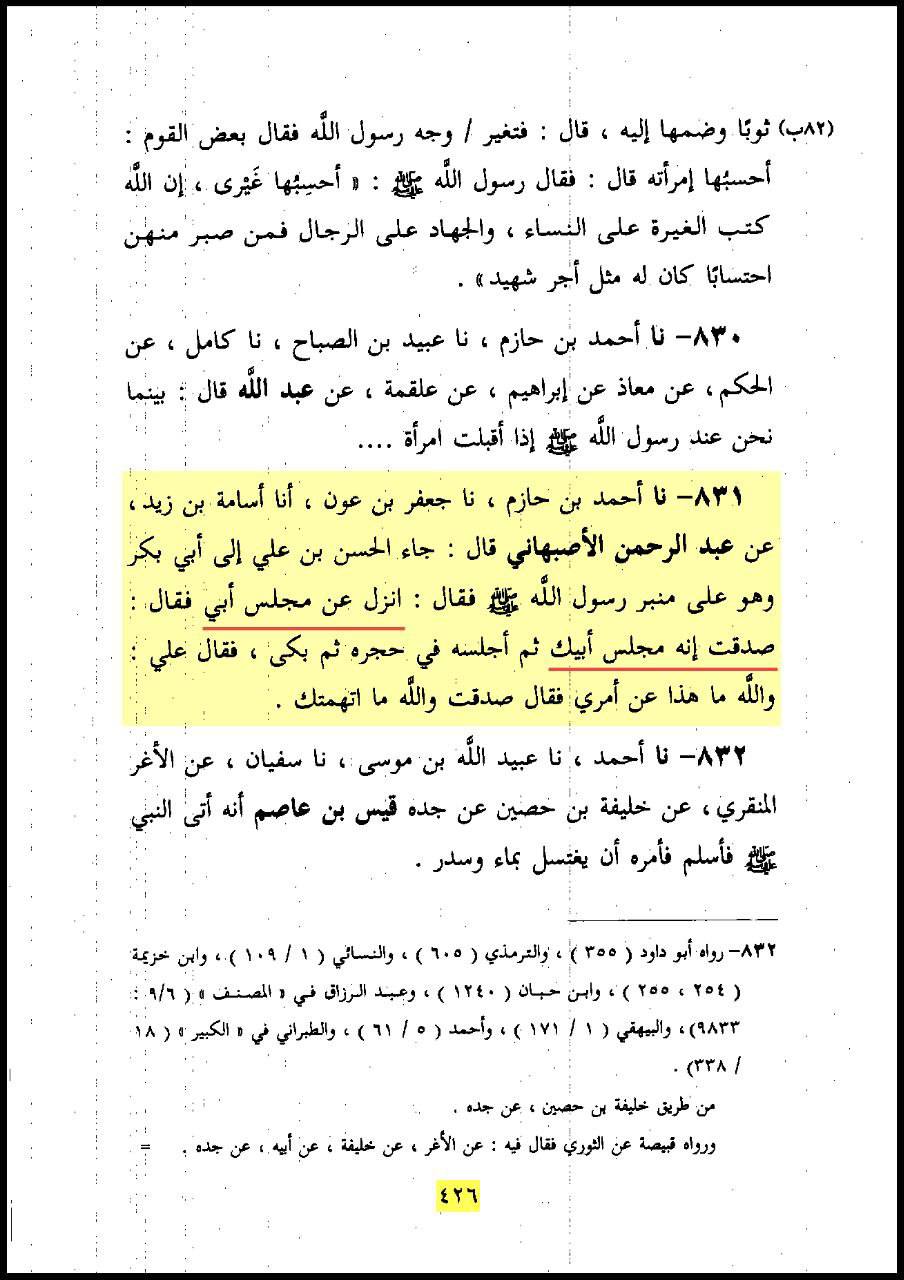 (٨٢ب) ثوبًا وضمها إليه ، قال : فتغير / وجه رسول اللَّه فقال بعض القوم :
أحسبُها إمرأته قال : فقال رسول اللَّه ﷺ : « أحسِبُها غَيْرى ، إن اللَّه
كتب الغيرة على النساء ، والجهاد على الرجال فمن صبر منهن
احتسابًا كان له مثل أجر شهيد» .
٨٣٠- نا أحمد بن حازم ، نا عبيد بن الصباح ، نا كامل ، عن
الحكم، عن معاذ عن إبراهيم ، عن علقمة ، عن عبد اللَّه قال : بينما
نحن عند رسول اللَّه ﷺ إذا أقبلت امرأة ....
٨٣١- نا أحمد بن حازم ، نا جعفر بن عون ، أنا أسامة بن زيد،
عن عبد الرحمن الأصبهاني قال : جاء الحسن بن علي إلى أبي بكر
وهو على منبر رسول اللَّه ﷺ فقال : انزل عن مجلس أبي فقال :
صدقت إنه مجلس أبيك ثم أجلسه في حجره ثم بكى ، فقال علي :
واللَّه ما هذا عن أمري فقال صدقت واللَّه ما اتهمتك .
٨٣٢- نا أحمد ، نا عبيد اللَّه بن موسى ، نا سفيان ، عن الأغر
المنقري، عن خليفة بن حصين عن جده قيس بن عاصم أنه أتى النبي
ﷺ فأسلم فأمره أن يغتسل بماء وسدر .
٨٣٢- رواه أبو داود ( ٣٥٥ ) ، والترمذي ( ٦٠٥ ) ، والنسائي ( ١ / ١٠٩ ) ، وابن خزيمة
( ٢٥٤ ، ٢٥٥ ) ، وابن حبان ( ١٢٤٠ ) ، وعبد الرزاق في « المصنف » ( ٩/٦ :
٩٨٣٣)، والبيهقي ( ١ / ١٧١ ) ، وأحمد ( ٥ / ٦١ ) ، والطبراني في « الكبير » ( ١٨
/ ٣٣٨) .
من طريق خليفة بن حصين ، عن جده .
ورواه قبيصة عن الثوري فقال فيه : عن الأغر ، عن خليفة ، عن أبيه ، عن جده . =
٤٢٦